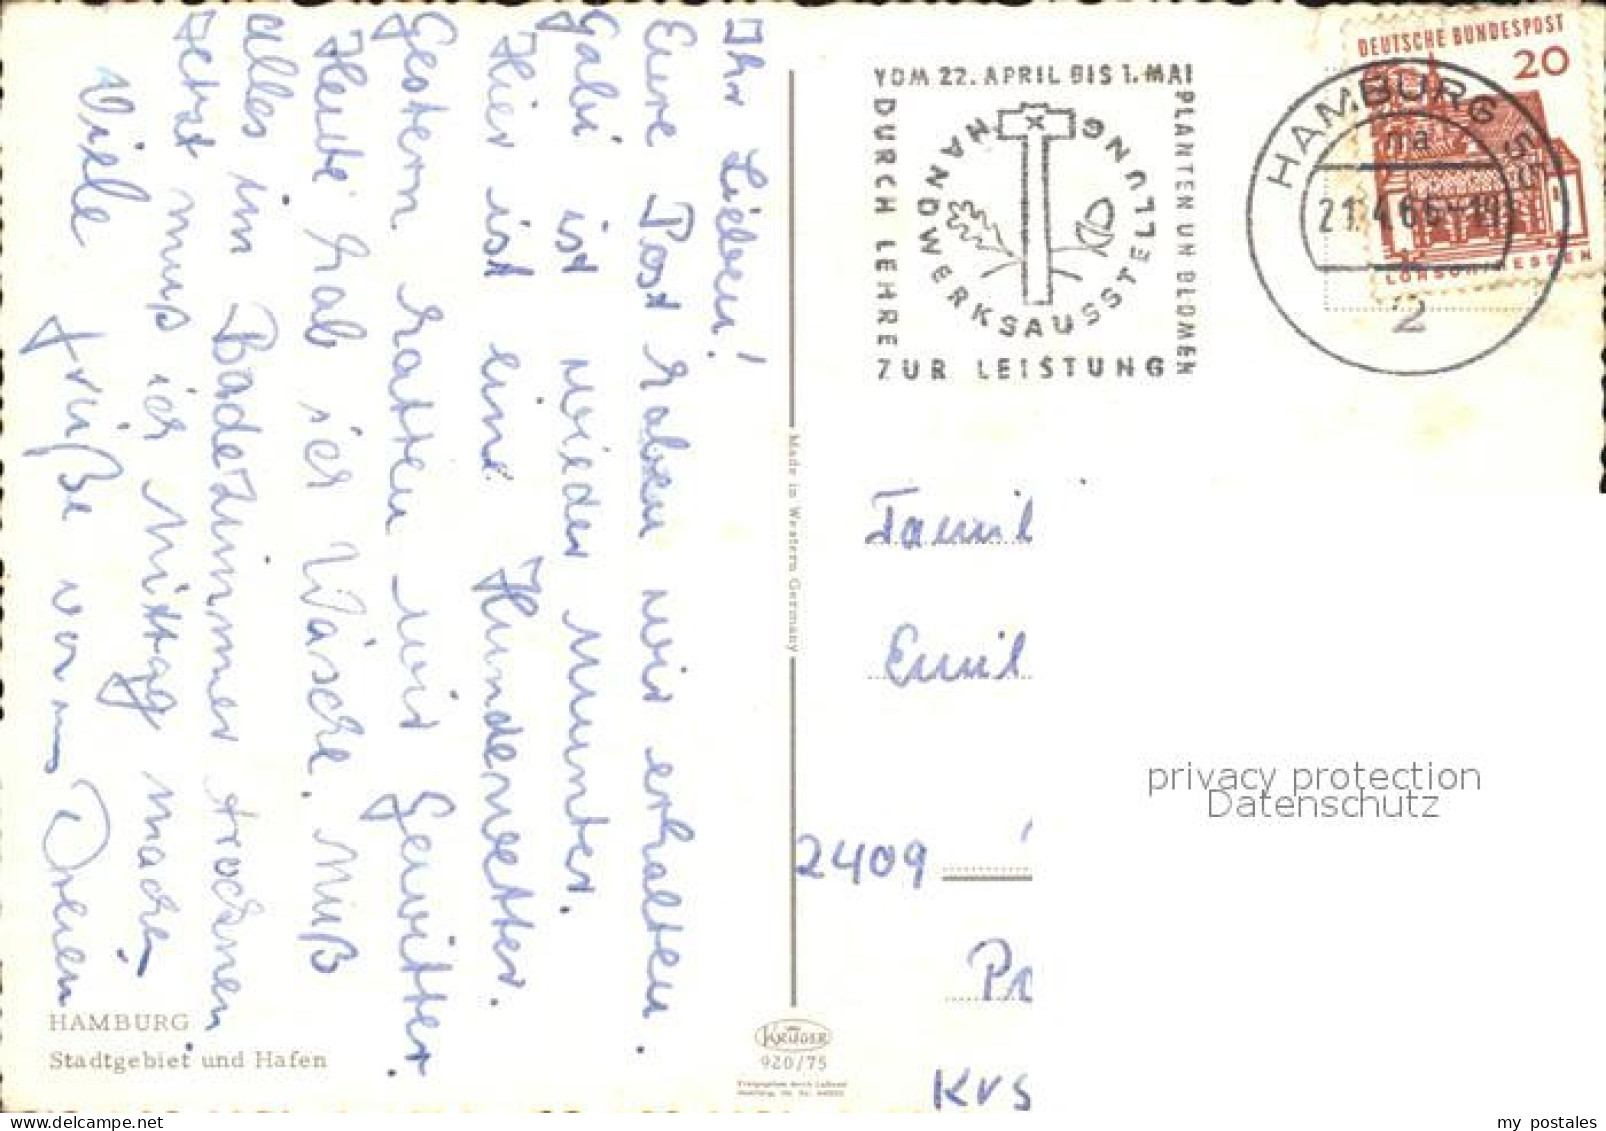 Ihr Lieben!
Eure Post haben wir erhalten.
Gabi ist wieder munter.
Hier ist ein Hundewetter.
Gestern hatten wir Gewitter.
Heute hab ich Wäsche. Muß
alles im Badezimmer trocknen.
Jetzt muß ich Mittag machen
Viele Grüße von
HAMBURG
Stadtgebiet und Hafen
Made in Western Germany
KRÜGER
920/75
VOM 22. APRIL BIS 1. MAI
PLANTEN UN BLOMEN
DURCH LEHRE
ZUR LEISTUNG
HANDWERKSAUSSTELLUNG
DEUTSCHE BUNDESPOST
20
LORSCH/HESSEN
HAMBURG
ma
2
Famil
Emil
2409
Pr
Krs
privacy protection
Datenschutz
my postales